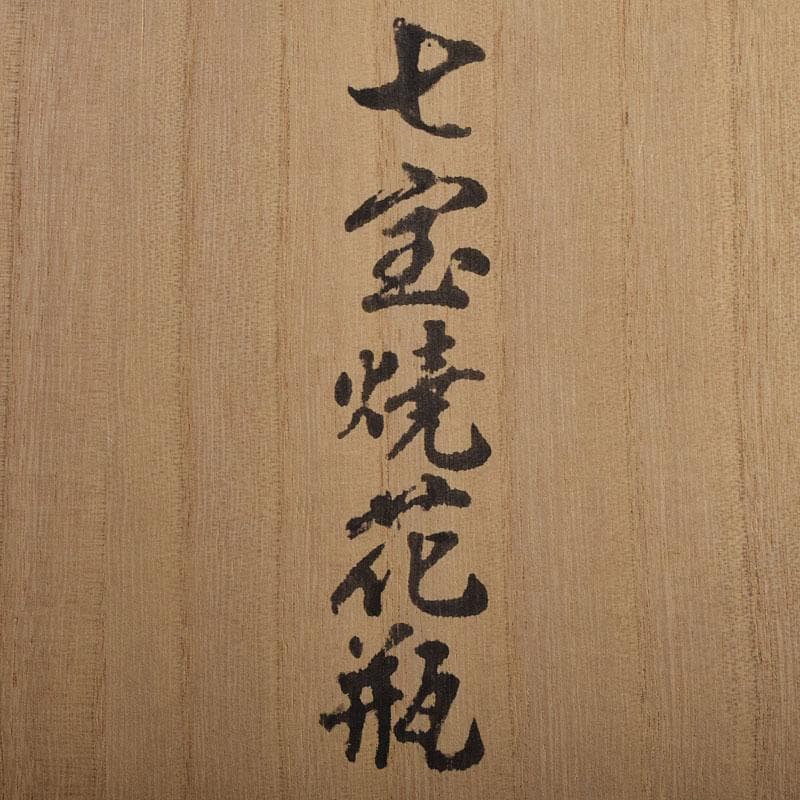 七宝燒花瓶